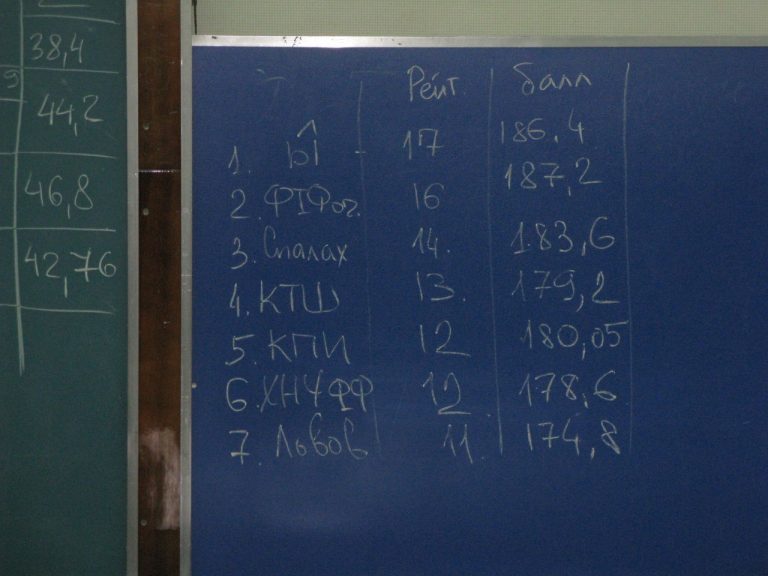 38,4
9
44,2
46,8
42,76
Рейт. балл
1. Ы̂ - 17 186.4
2. ФІФог. 16 187,2
3. Спалах 14. 183,6
4. КТШ 13. 179,2
5. КПИ 12 180,05
6. ХНУФФ 12 178,6
7. Львов 11. 174,8